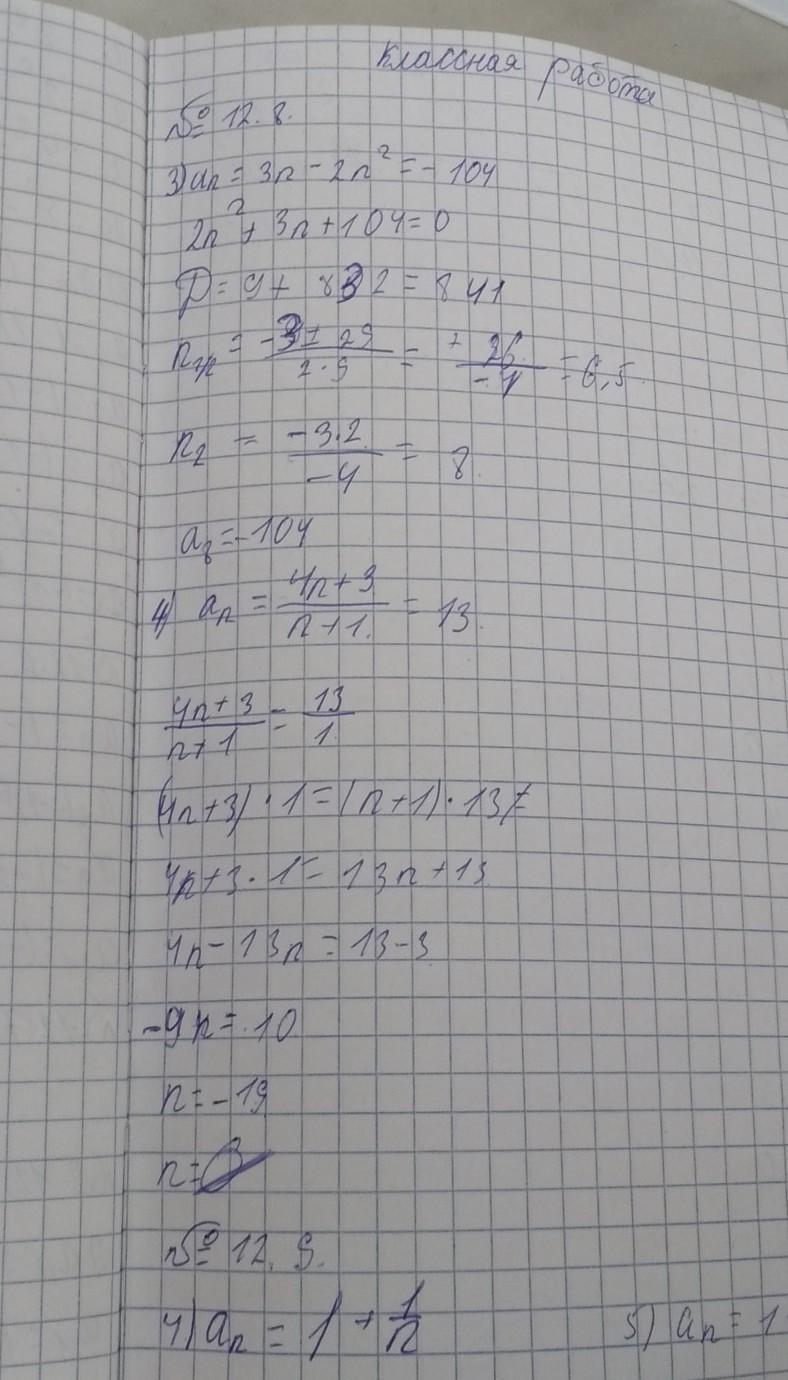 Классная работа
№ 12.8.
3) aₙ = 3n - 2n² = - 104
2n² + 3n + 104 = 0
D = 9 + 832 = 841
= -3 ± 29 / 2·9 = + 26 / -4 = 6,5
n₂ = -3·2 / -4 = 8.
a₈ = -104
4) aₙ = 4n+3 / n+1. = 13.
4n+3 / n+1 = 13 / 1.
(4n+3)·1 = (n+1)·13
4n+3·1 = 13n+13
4n - 13n = 13-3
-9n = 10
n = -19
n =
№ 12.9.
4) aₙ = 1 + 1/n 5) aₙ = 1